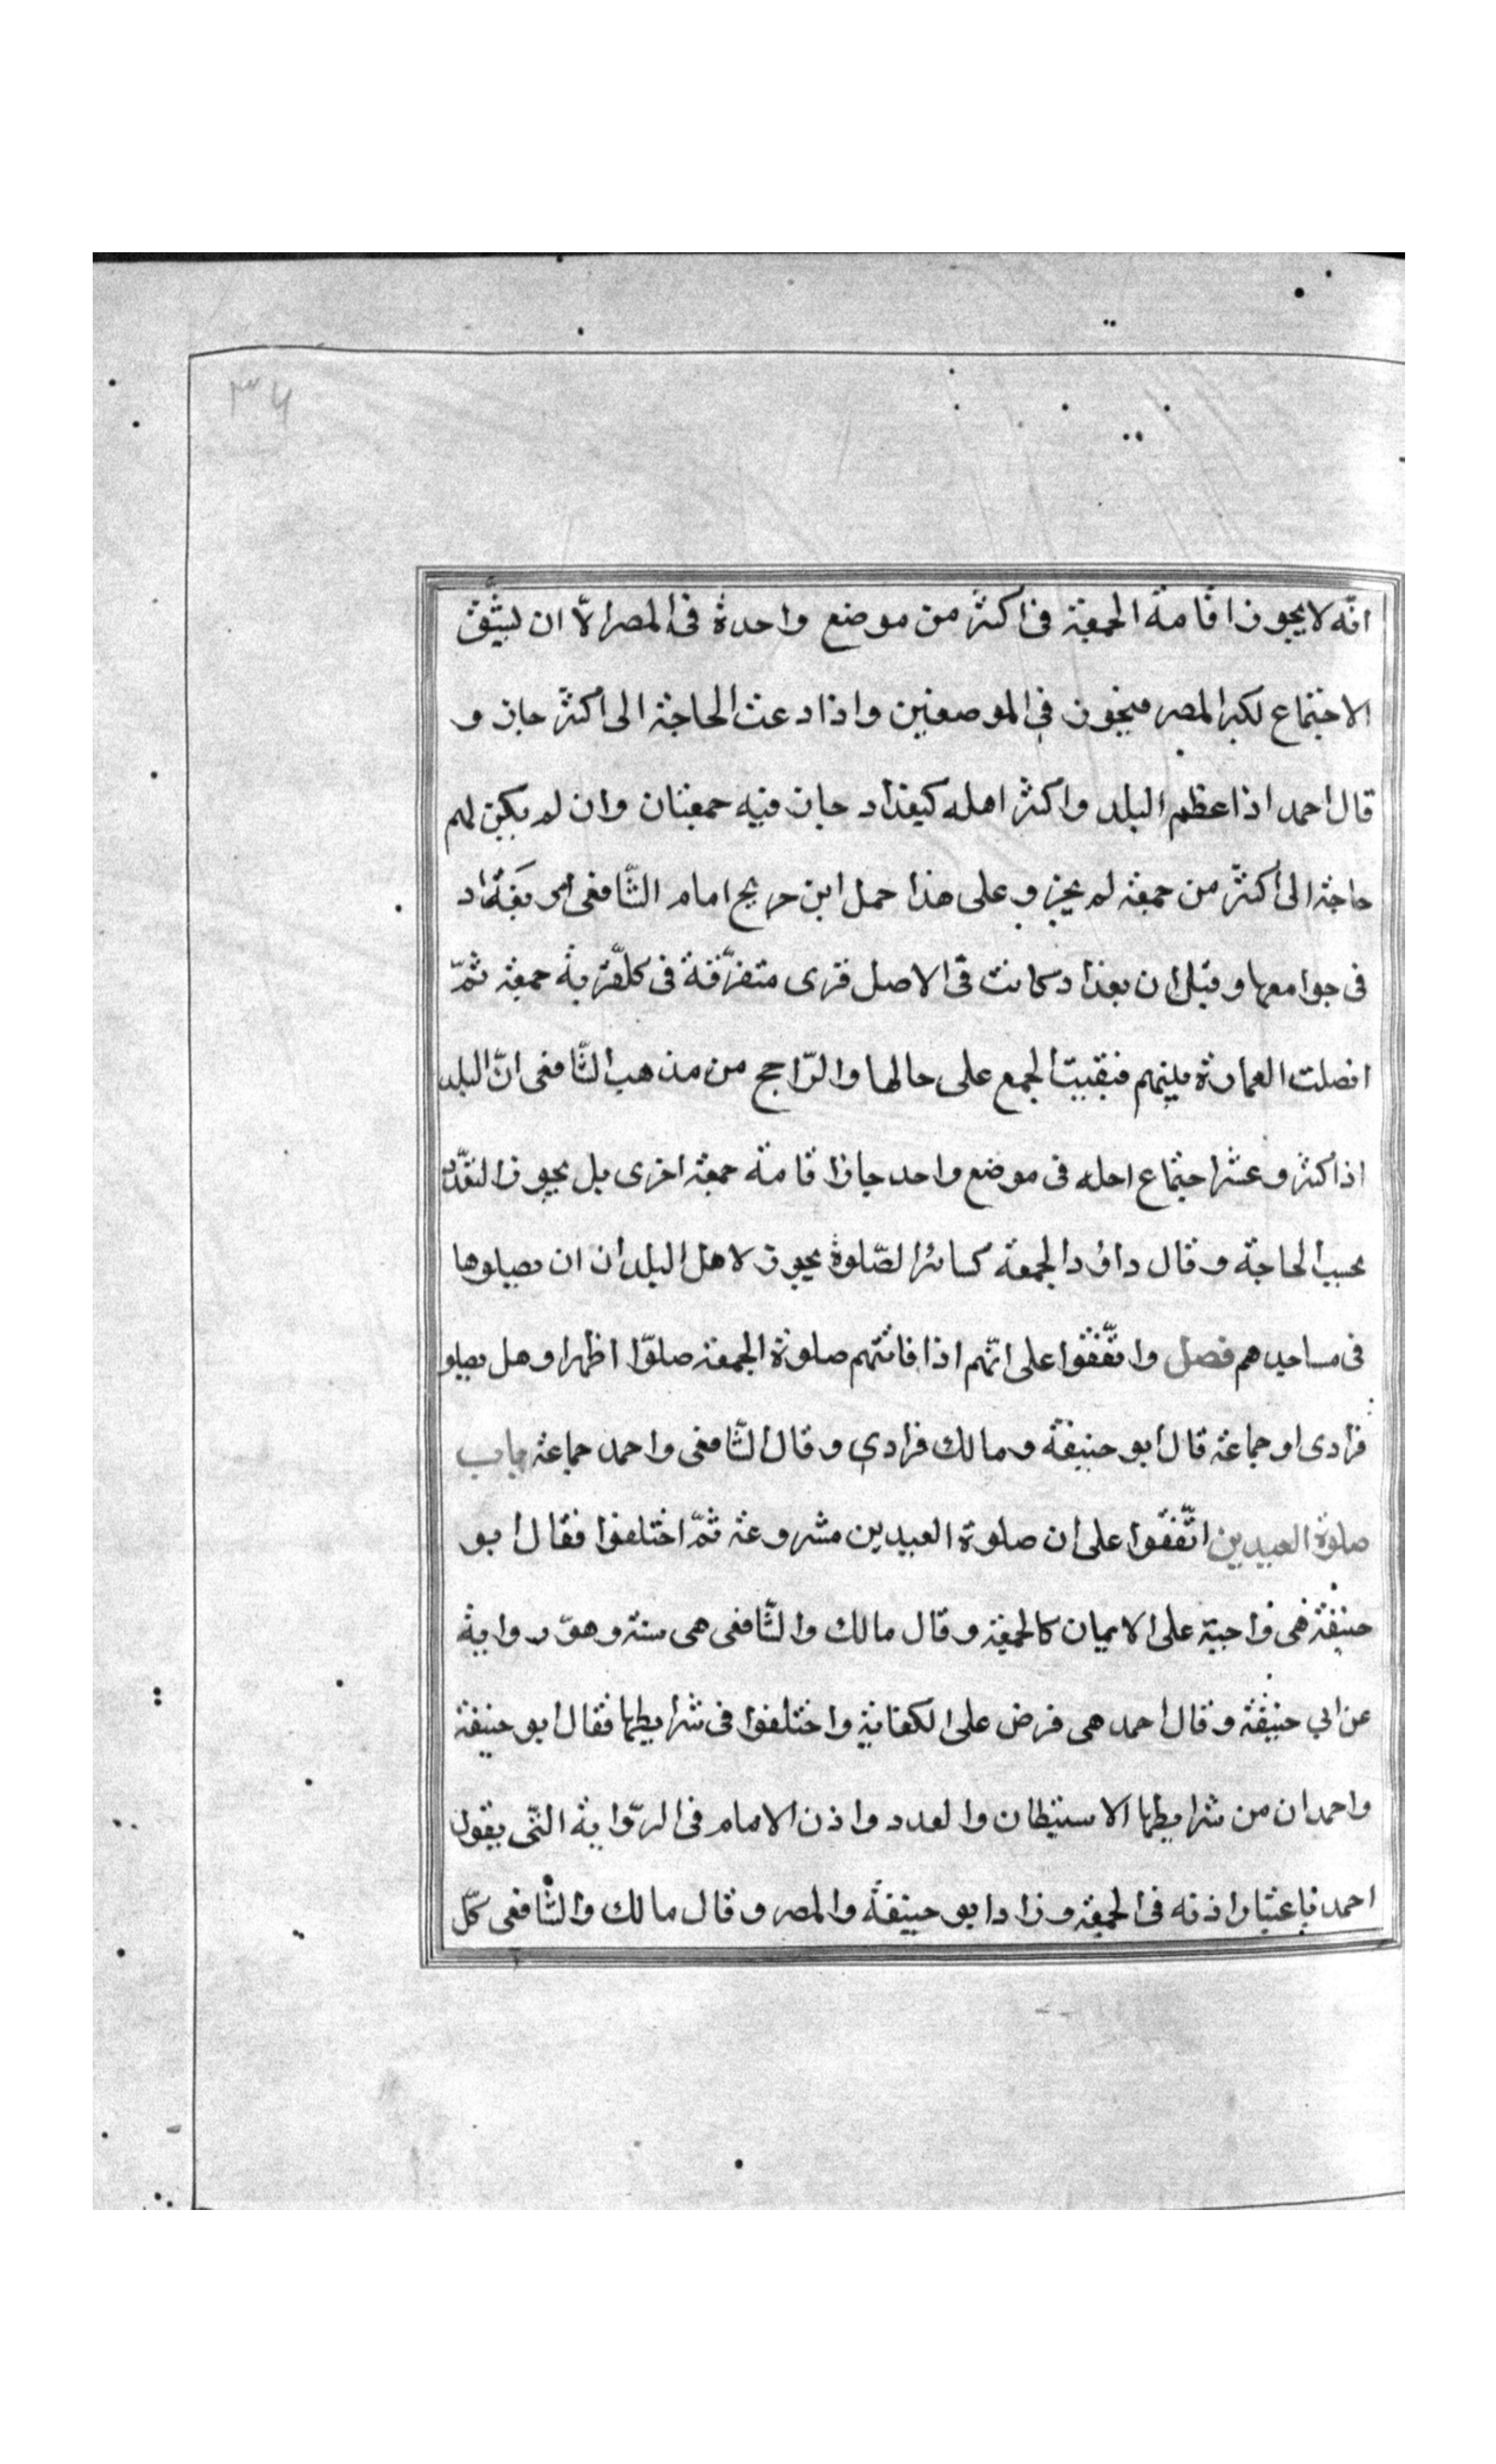 ٣٤
انّه لا يجوز اقامة الجمعة فى اكثر من موضع واحدة فى المصر الّا ان يشقّ
الاجتماع لكبر المصر فيجوز فى الموضعين واذا دعت الحاجة الى اكثر جاز و
قال احمد اذا عظم البلد واكثر اهله كبغداد جاز فيه جمعتان وان لم يكن لهم
حاجة الى اكثر من جمعة لم يجز وعلى هذا حمل ابن جريج امام الشّافعى امر بغداد
فى جوامعها وقيل ان بغداد كانت فى الاصل قرى متفرّقة فى كلّ قرية جمعة ثمّ
افصلت العمارة بينهم فبقيت الجمع على حالها والرّاجح من مذهب الشّافعى انّ البلد
اذا كثر وعشر اجتماع اهله فى موضع واحد جاز اقامة جمعة اخرى بل يجوز التعدّد
بحسب الحاجة وقال داؤد الجمعة كسائر الصّلوة يجوز لاهل البلدان ان يصلوها
فى مساجدهم فصل واتّفقوا على انّهم اذا فاتتهم صلوة الجمعة صلوّا اظهرا وهل يصلو
فرادى او جماعة قال ابو حنيفة ومالك فرادى وقال الشّافعى واحمد جماعة باب
صلوة العيدين اتّفقوا على ان صلوة العيدين مشروعة ثمّ اختلفوا فقال ابو
حنيفة هى واجبة على الايمان كالجمعة وقال مالك والشّافعى هى سنة وهو رواية
عن ابي حنيفة وقال احمد هى فرض على الكفاية واختلفوا فى شرايطها فقال ابو حنيفة
واحمد ان من شرايطها الاستيطان والعدد واذن الامام فى الرّواية التّى يقول
احمد باعتبار اذنه فى الجمعة وزاد ابو حنيفة والمصر وقال مالك والشّافعى كلّ